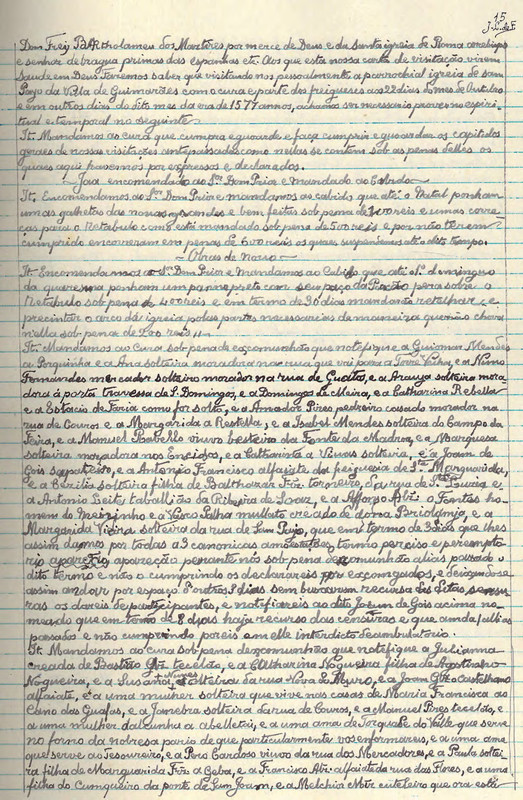 15
J. L. de F.
Dom Frey Bartholameu dos Martires por merce de Deus e da Santa igreia de Roma arcebispo
e senhor de bragua primas das espanhas etc. Aos que esta nossa carta de visitação virem
Saude em Deus Fazemos saber que visitando nos pessoalmente a parrochial igreia de Sam
Payo da Villa de Guimarães com o cura e parte dos freigueses aos 22 dias do mes de Outubro
e em outros dias do dito mes da era de 1577 annos, achamos ser necessario prover no espiri-
tual e temporal no seguinte
It. Mandamos ao cura que cumpra e guarde e faça cumprir e guardar os capitolos
geraes de nossas visitações antepassadas como nellas se contem sob as penas delles os
quaes aqui havemos por expressos e declarados.
— Joia encomendado ao Snr. Dom Prior e mandado ao Cabido —
It. Encomendamos ao Snr. Dom Prior e mandamos ao cabido que até o Natal ponham
umas galhetas das novas grandes e bem feitas sob pena de 400 reis e umas corre-
ças para o Retabulo como está mandado sob pena de 500 reis e por não terem
cumprido encorreram em penas de 600 reis os quaes suspendemos até o dito tempo.
— Obras de novo —
It. Encomendamos ao Snr. Dom Prior e Mandamos ao Cabido que até o 1º domingo
da quaresma ponham um panno preto com seu paço da Paixão pera sobre o
Retabulo sob pena de 400 reis e em termo de 30 dias mandarão retelhar e
precintar o arco da igreia polas partes necessarias de maneira que não chova
nella sob pena de 200 reis
It. Mandamos ao Cura sob pena de excomunhão que notifique a Guiomar Mendes
a Porquinha e a Ana solteira moradora na rua que vai para a Torre Velha, e a Nuno
Fernandes mercador solteiro morador na rua de Guatos, e a Arauja solteira mora-
dora á porta travessa de S. Domingos, e a Domingas de Meira, e a Catharina Rebella
e a Estacio de Faria como for solto, e a Amador Pires pedreiro casado morador na
rua de Couros e a Margarida a Restella, e a Isabel Mendes solteira do Campo da
Feira, e a Manuel Rabello viuvo besteiro da Fonte da Madroa, e a Marquesa
solteira moradora nos Enxidos, e a Catharina a Vinvas solteria, e a Joam de
Gois sapateiro, e a Antonio Francisco alfaiate da freiguesia de Sta. Marguarida,
e a Cecilia solteira filha de Balthazar Frz. torneiro, da rua de Sta. Luzia e
a Antonio Leite taballião da Ribeira de Soaz, e a Affonso Alz. o Fontes ho-
mem do Meirinho e a Vasco Palha mullato creado de dona Briolanja, e a
Margarida Vieira solteira da rua de Sam Payo, que em termo de 3 dias que lhes
assim damos por todas a 3 canonicas amoestações, termo preciso e perempto-
rio apareção, apareção perante nós sob pena de excomunhão alias passado o
dito termo e não o cumprindo os declarareis por excomungados, e deixando-se
assim andar por espaço d'outros 3 dias sem buscarem recurso das ditas censu-
ras os dareis de participantes, e notificareis ao dito Joam de Gois acima no-
meado que em termo de 8 dias haja recurso das censuras e que anda faz annos
passados e não cumprindo poreis em elle interdicto deambulatorio.
It. Mandamos ao cura sob pena de excomunhão que notifique a Julianna
creada de Bastião Glz. tecelão, e a Catharina Nogueira filha de Agostinho
Nogueira, e a Susana Nunes solteira da rua Nova do Muro, e a Joam Glz. o Castelhano
alfaiate, e a uma mulher solteira que vive nas casas de Maria Francisca ao
Cano das Guafas, e a Janebra solteira da rua de Couros, e a Manuel Pires tecelão, e
a uma mulher da Cunha a abelleira, e a uma ama de Torquade do Valle que serve
no forno da nobresa parcio de que particularmente vos enformareis, e a uma ama
que serve ao Tesoureiro, e a Pero Cardoso viuvo da rua dos Mercadores, e a Paula soltei-
ra filha de Marguarida Frz. a Geba, e a Francisco Alz. alfaiate da rua das Flores, e a uma
filha do Cumqueiro da ponte de Sam Joam, e a Melchior Mdz. cuteleiro que ora está